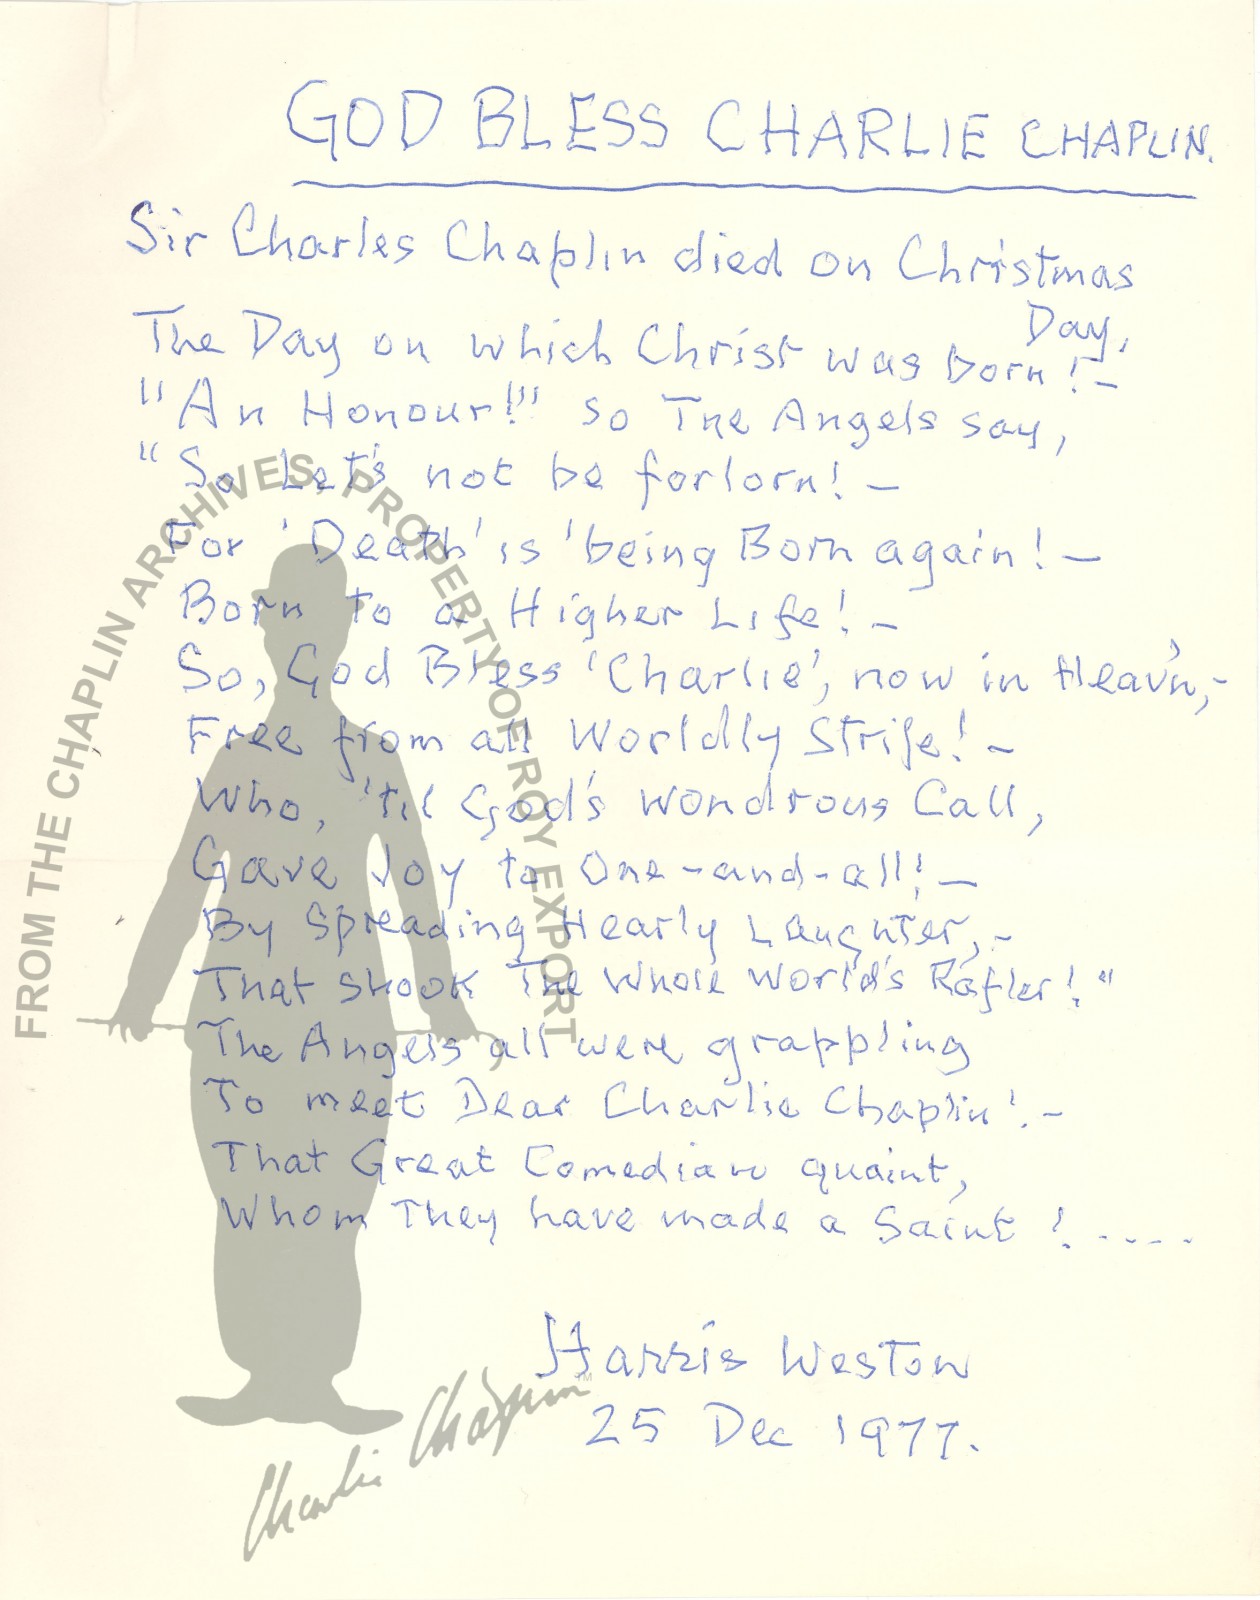 GOD BLESS CHARLIE CHAPLIN.
Sir Charles Chaplin died on Christmas
Day,
The Day on which Christ was Born! –
"An Honour!" so The Angels say,
"So Let's not be forlorn! –
For 'Death' is 'being Born again! –
Born to a Higher Life! –
So, God Bless 'Charlie', now in Heav'n, –
Free from all Worldly Strife! –
Who, 'til God's wondrous Call,
Gave Joy to One-and-all! –
By Spreading Hearty Laughter, –
That shook The Whole World's Rafter!"
The Angels all were grappling
To meet Dear Charlie Chaplin! –
That Great Comedian quaint,
Whom They have made a Saint! .....
Harris Weston
25 Dec 1977.
FROM THE CHAPLIN ARCHIVES, PROPERTY OF ROY EXPORT
Charlie Chaplin™